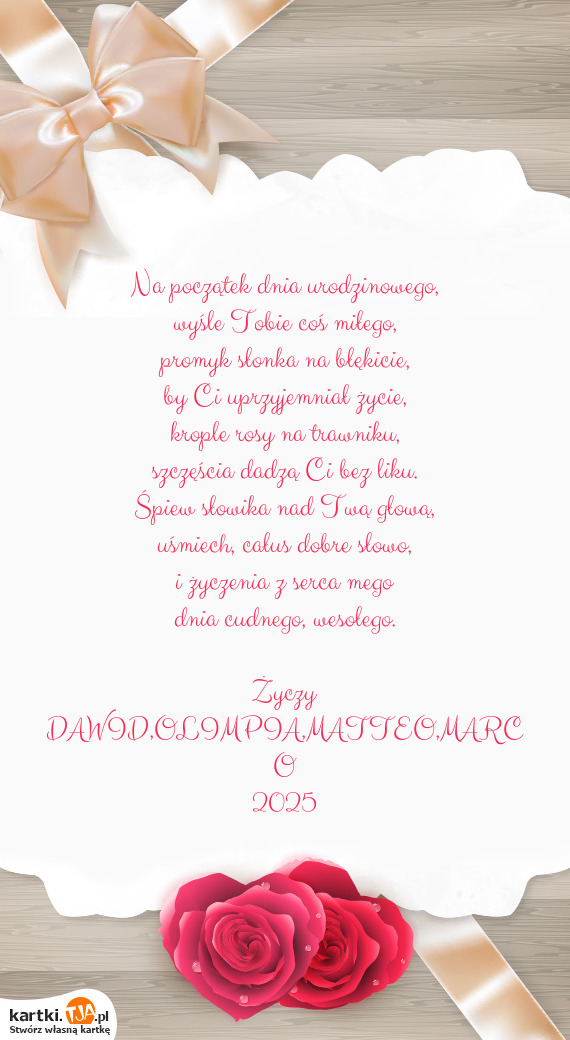 Na początek dnia urodzinowego,
wyśle Tobie coś miłego,
promyk słonka na błękicie,
by Ci uprzyjemniał życie,
krople rosy na trawniku,
szczęścia dadzą Ci bez liku.
Śpiew słowika nad Twą głową,
uśmiech, całus dobre słowo,
i życzenia z serca mego
dnia cudnego, wesołego.
Życzy
DAWID,OLIMPIA,MATTEO,MARC
O
2025
kartki.TJA.pl
Stwórz własną kartkę